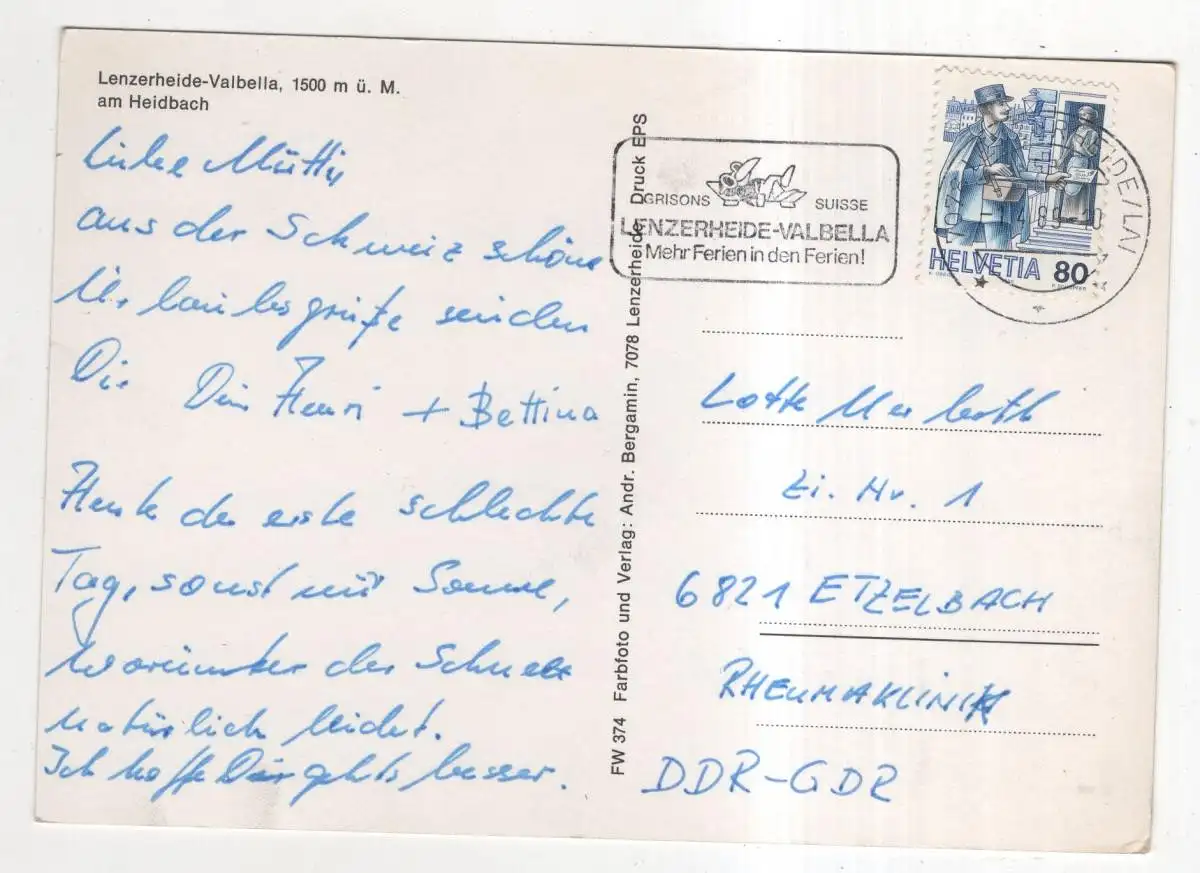 Lenzerheide-Valbella, 1500 m ü. M.
am Heidbach
Liebe Mutti,
aus der Schweiz schöne
Urlaubsgrüße senden
Dir Dein Henri + Bettina
Heute der erste schlechte
Tag, sonst nur Sonne,
worunter der Schnee
natürlich leidet.
Ich hoffe Dir gehts besser.
FW 374 Farbfoto und Verlag: Andr. Bergamin, 7078 Lenzerheide, Druck EPS
GRISONS SUISSE
LENZERHEIDE-VALBELLA
Mehr Ferien in den Ferien!
HELVETIA 80
Lotte
Zi. Nr. 1
6821 ETZELBACH
RHEUMAKLINIK
DDR-GDR